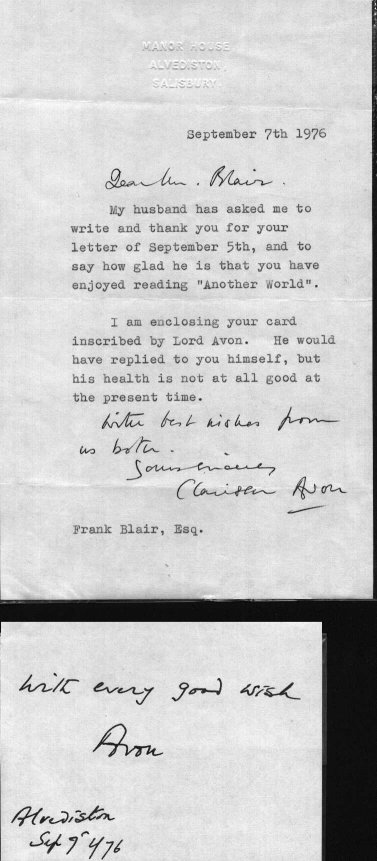 MANOR HOUSE
ALVEDISTON,
SALISBURY.
September 7th 1976
Dear Mr. Blair.
My husband has asked me to
write and thank you for your
letter of September 5th, and to
say how glad he is that you have
enjoyed reading "Another World".
I am enclosing your card
inscribed by Lord Avon. He would
have replied to you himself, but
his health is not at all good at
the present time.
With best wishes from
us both.
Yours sincerely
Clarissa Avon
Frank Blair, Esq.
With every good wish
Avon
Alvediston
Sep 9th/76